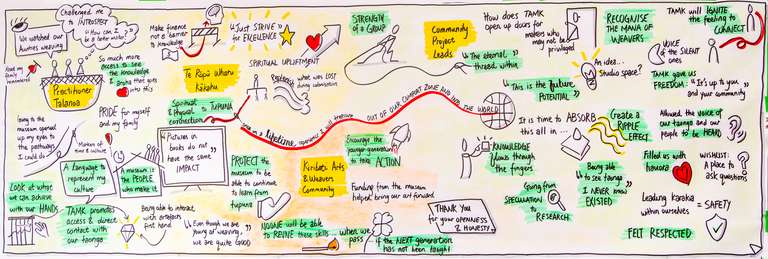 We watched our
Aunties weaving
Challenged me
to INTROSPECT
"How can I
be a better weaver?"
So much more
access to see
the knowledge
& ... that was
into this
Practitioner
Talanoa
Make finance
not a barrier
to knowledge
"Just STRIVE
for EXCELLENCE"
STRENGTH
of a GROUP
SPIRITUAL UPLIFTMENT
Te Rōpū
Kākahu
what was LOST
Spiritual
& Physical to TUPUNA
connection
PRIDE for myself
and my family
Going to the
museum opened
up my eyes to
the pathways
I could do
Markers of
time & culture
A Language to
represent my
culture
A museum is
the PEOPLE
who make it
"Pictures in
books do not
have the same
IMPACT
Look at what
we can achieve
with our HANDS
TAMK promotes
access & direct
contact with
our taonga
Being able to
interact with artefacts
first hand
Even though we are
young at weaving,
we are quite GOOD
PROTECT
the museum to
be able to
continue
to learn from
tupuna
NOONE will be able
to REVIVE these skills... when we
pass... if the NEXT generation
has not been taught
Kiribati Arts
& Weavers
Community
Encourage the
younger generation
to take ACTION
Funding from the museum
helped bring our art forward
THANK YOU
for your OPENNESS
& HONESTY
Community
Project
Leads
OUT OF OUR COMFORT ZONE AND INTO THE WORLD
"The eternal
thread within"
How does TAMK
open up doors for
makers who
may not be
privileged
"This is the future
POTENTIAL"
RECOGNISE
the MANA OF
WEAVERS
An idea...
Studio space?
It is time to ABSORB
this all in...
KNOWLEDGE
flows through
the fingers
Going from
SPECULATION
to RESEARCH
Being able
to see taonga
I NEVER KNEW
EXISTED
Create a
RIPPLE
EFFECT
TAMK will IGNITE
the feeling to
CONNECT
VOICE of
the SILENT
ones
TAMK gave us
FREEDOM: "It's up to you
and your community
Allowed the voice of
our taonga and our
people to be HEARD
Filled us with
hanoora
WISHLIST:
A place to
ask questions
Leading karakia
within ourselves
= SAFETY
FELT RESPECTED